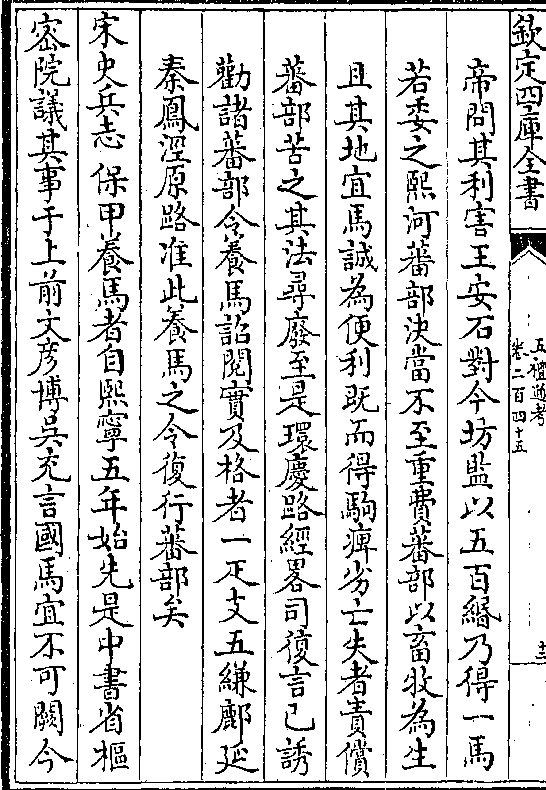 欽定四庫全書
五禮通考
卷二百四十五
十三
帝問其利害王安石對今坊監以五百緡乃得一馬
若委之熙河蕃部決當不至重費蕃部以畜牧為生
且其地宜馬誠為便利既而得駒痺劣亡失者責償
蕃部苦之其法尋廢至是環慶路經畧司復言已誘
勸諸蕃部令養馬詔閱實及格者一疋支五縑鄜延
秦鳳涇原路准此養馬之令復行蕃部矣
宋史兵志 保甲養馬者自熙寧五年始先是中書省樞
宻院議其事于上前文彦博吳充言國馬宜不可闕今